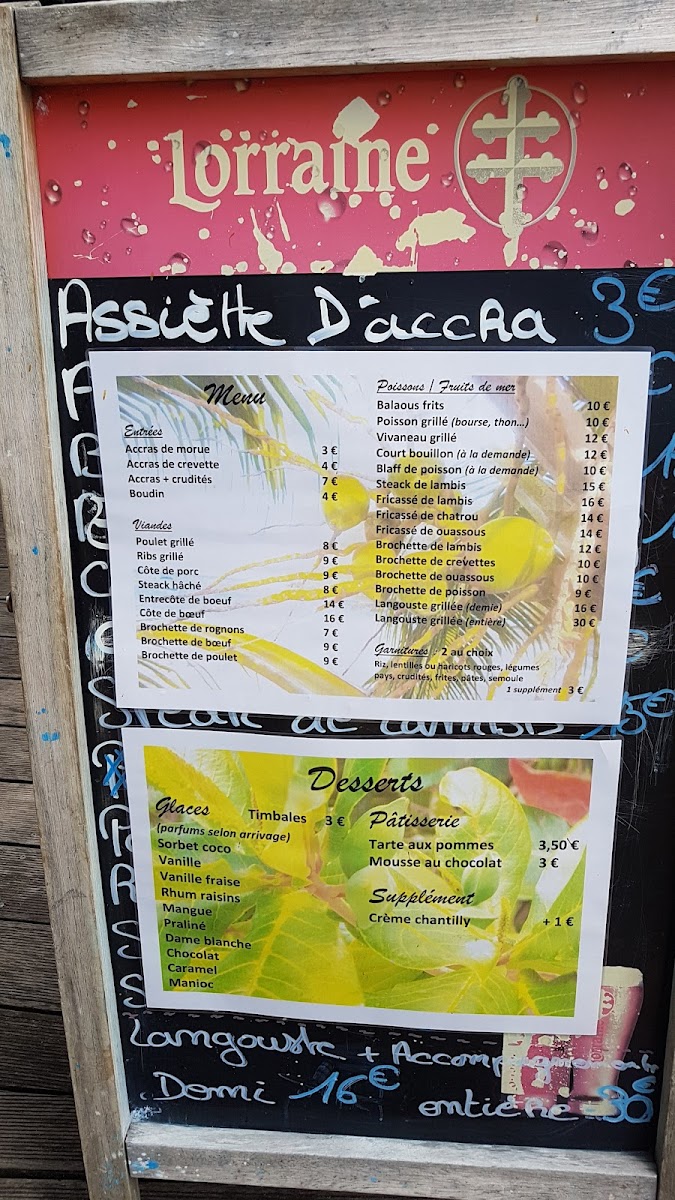 Lorraine
Assiètte D'accra 3€
Menu
Entrées
Accras de morue 3 €
Accras de crevette 4 €
Accras + crudités 7 €
Boudin 4 €
Viandes
Poulet grillé 8 €
Ribs grillé 9 €
Côte de porc 9 €
Steack hâché 8 €
Entrecôte de boeuf 14 €
Côte de bœuf 16 €
Brochette de rognons 7 €
Brochette de bœuf 9 €
Brochette de poulet 9 €
Poissons / Fruits de mer
Balaous frits 10 €
Poisson grillé (bourse, thon...) 10 €
Vivaneau grillé 12 €
Court bouillon (à la demande) 12 €
Blaff de poisson (à la demande) 10 €
Steack de lambis 15 €
Fricassé de lambis 16 €
Fricassé de chatrou 14 €
Fricassé de ouassous 14 €
Brochette de lambis 12 €
Brochette de crevettes 10 €
Brochette de ouassous 10 €
Brochette de poisson 9 €
Langouste grillée (demie) 16 €
Langouste grillée (entière) 30 €
Garnitures : 2 au choix
Riz, lentilles ou haricots rouges, légumes
pays, crudités, frites, pâtes, semoule
1 supplément 3 €
Steak de lambis 15€
Desserts
Glaces Timbales 3 €
(parfums selon arrivage)
Sorbet coco
Vanille
Vanille fraise
Rhum raisins
Mangue
Praliné
Dame blanche
Chocolat
Caramel
Manioc
Pâtisserie
Tarte aux pommes 3,50 €
Mousse au chocolat 3 €
Supplément
Crème chantilly + 1 €
Langouste +
Demi 16€ entière 30€